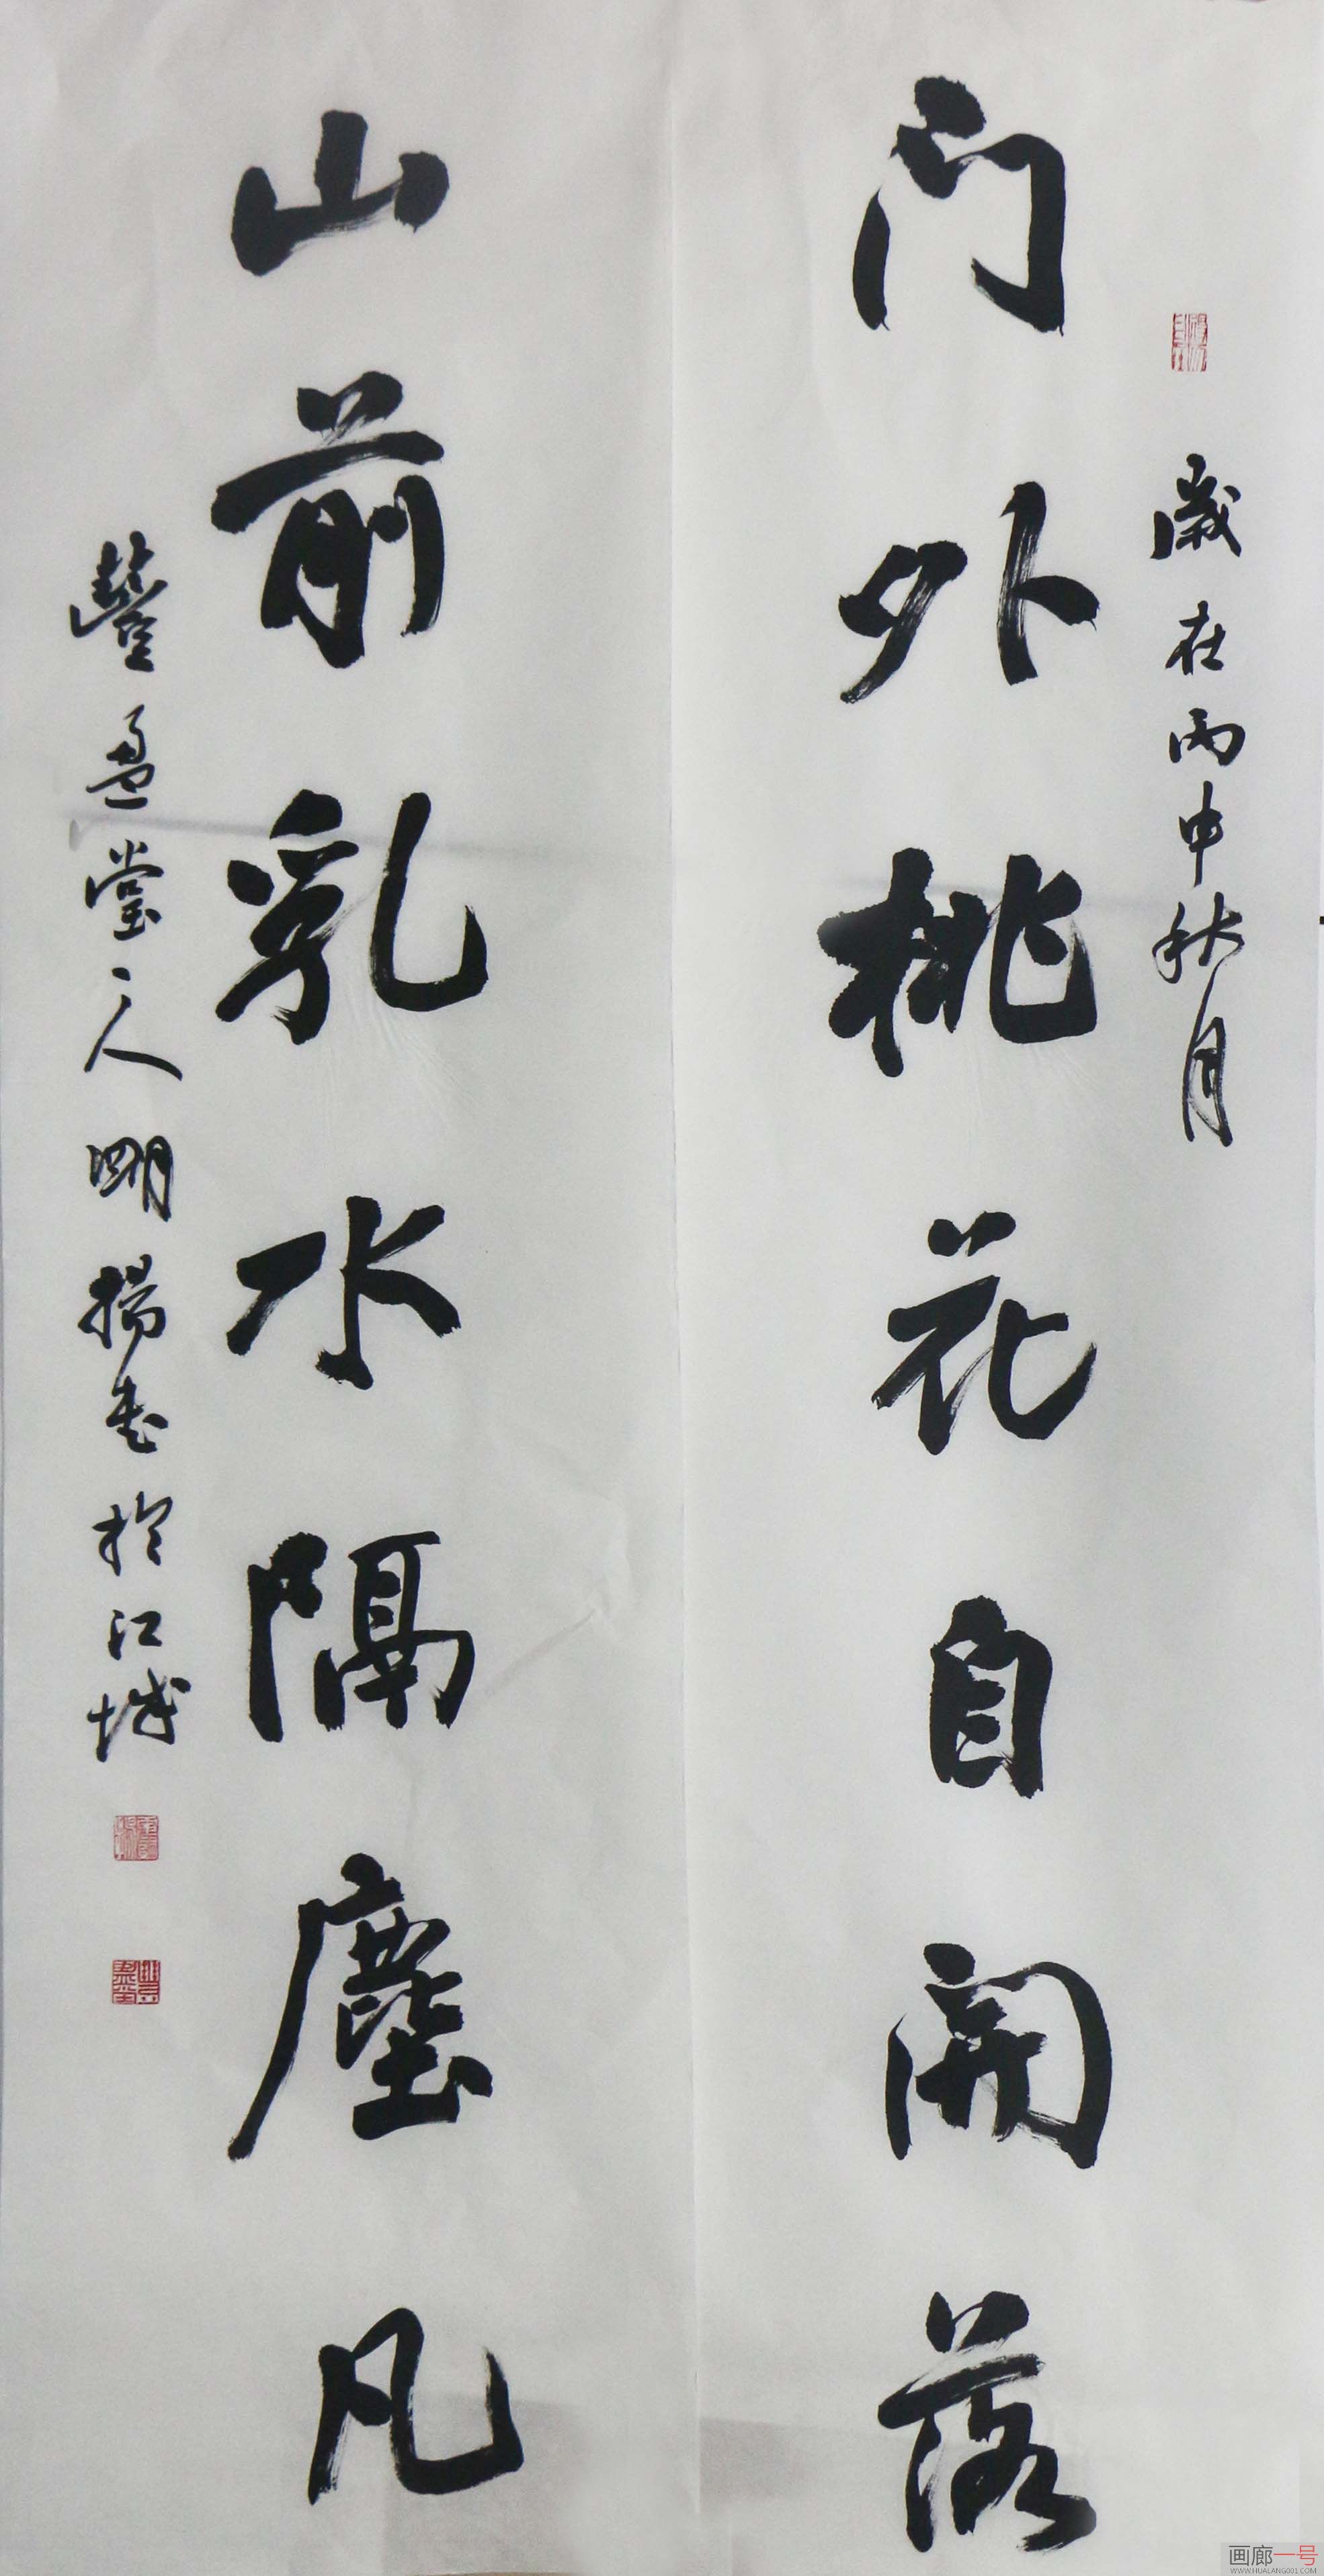 岁在丙申秋月
门外桃花自开落
山前乳水隔塵凡
豐盈堂主人明揚书於江城
画廊一号
WWW.HUALANG001.COM